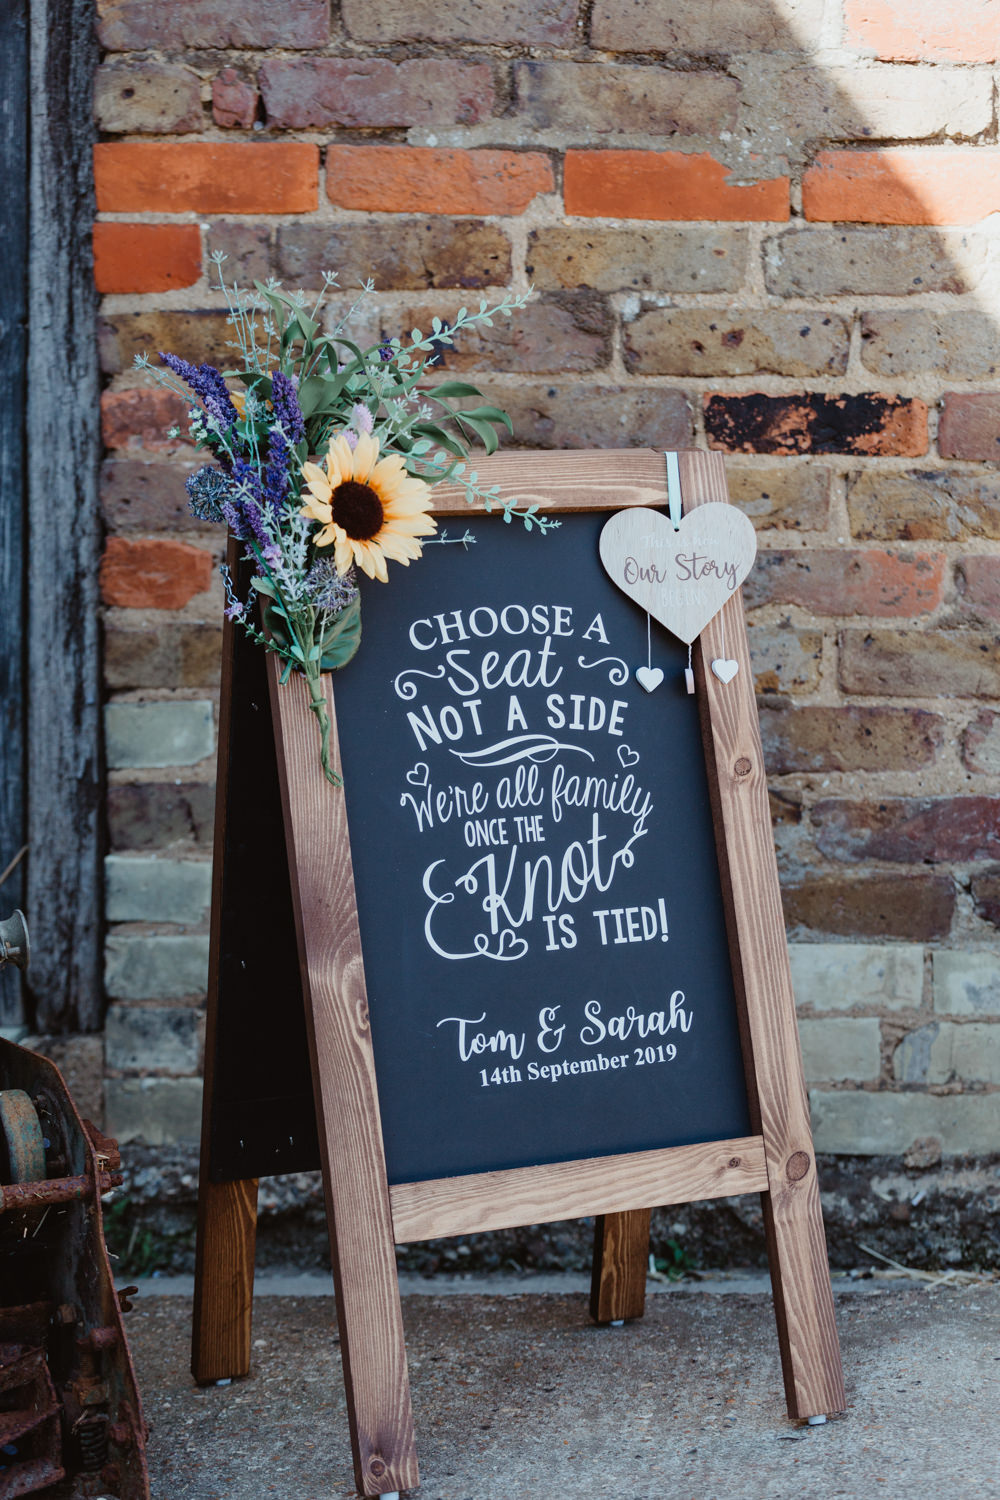 This is how
Our Story
BEGINS
CHOOSE A
Seat
NOT A SIDE
We're all family
ONCE THE
Knot
IS TIED!
Tom & Sarah
14th September 2019